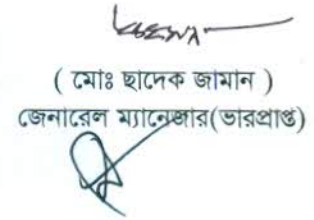 ( মোঃ ছাদেক জামান )
জেনারেল ম্যানেজার(ভারপ্রাপ্ত)